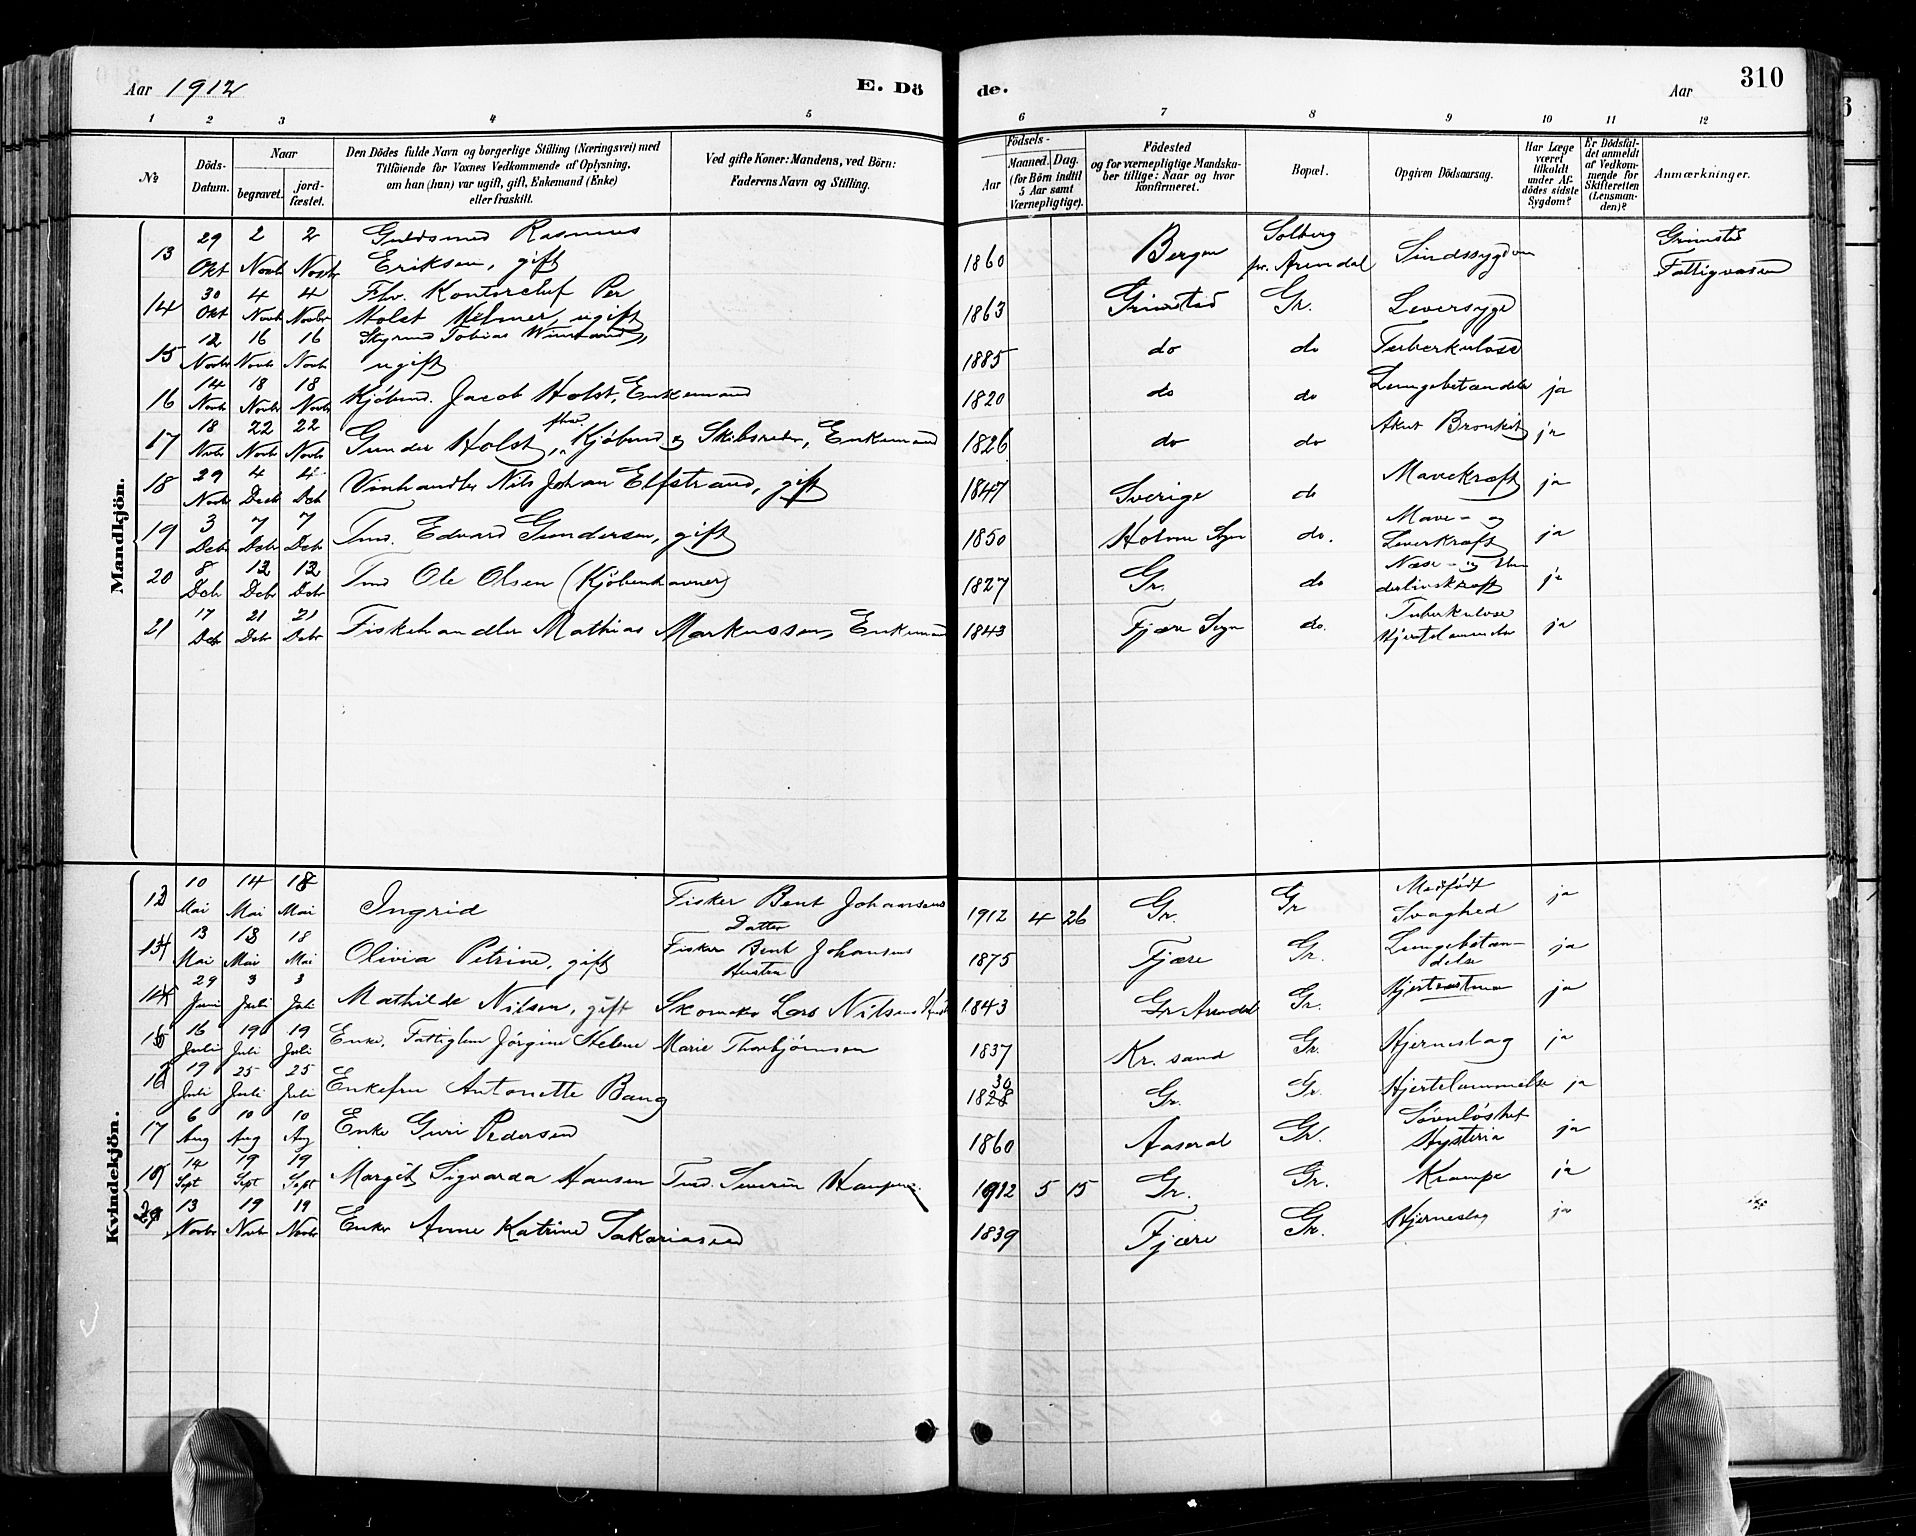 Aar 1912
E. Dö
de.
Aar
310
1 2 3 4 5 6 7 8 9 10 11 12
No
Döds-Datum.
Naar
begravet.
jord-fæstet.
Den Dödes fulde Navn og borgerlige Stilling (Næringsvei) med
Tilföiende for Voxnes Vedkommende af Oplysning,
om han (hun) var ugift, gift, Enkemand (Enke)
eller fraskilt.
Ved gifte Koner: Mandens, ved Börn:
Faderens Navn og Stilling.
Födsels-
Aar
Maaned. Dag.
(for Börn indtil
5 Aar samt
Værnepligtige).
Födested
og for værnepligtige Mandska-
ber tillige: Naar og hvor
konfirmeret.
Bopæl.
Opgiven Dödsaarsag.
Har Læge
været
tilkaldt
under Af-
dödes sidste
Sygdom?
Er Dödsfal-
det anmeldt
af Vedkom-
mende for
Skifteretten
(Lensman-
den)?
Anmærkninger.
Mandkjön.
13 29 Okt 2 Novbr 2 Novbr Guldsmed Rasmus Eriksen, gift 1860 Bergen Solberg pr. Arendal Sindssygdom Grimstad Fattigvæsen
14 30 Okt 4 Novb 4 Novbr Fhv. Kontorchef Per Holst Helmer, ugift 1863 Grimstad Gr. Leversyge
15 12 Novbr 16 Novb 16 Novb Tobias ugift 1885 do do Tuberkulose
16 14 Novb 18 Novbr 18 Novbr Kjöbmd. Jacob Holst, Enkemand 1820 do do Lungebetændelse ja
17 18 Novbr 22 Novbr 22 Novbr Gunder Holst, fhv. Kjöbmd og Skibsreder, Enkemand 1826 do do Akut Bronkit ja
18 29 Novbr 4 Decb 4 Dcb Vinhandler Nils Johan Elfstrand, gift 1847 Sverige do Mavekræft ja
19 3 Dcbr 7 Dcbr 7 Dcbr Tmd. Edvard Gundersen, gift 1850 Holme Sogn do. Mave- og Leverkræft ja
20 8 Dcbr 12 Dcbr 12 Dcbr Tmd Ole Olsen (Kjöbenhavner) 1827 Gr. do Næse- og ja
21 17 Dcbr 21 Dcbr 21 Dcbr Fiskehandler Mathias Markussen, Enkemand 1843 Fjære Sogn do. Tuberkulose Hjertelammelse ja
Kvindekjön.
12 10 Mai 14 Mai 18 Mai Ingrid Fisker Bent Johansens Datter 1912 4 26 Gr. Gr Medfödt Svaghed ja
13 13 Mai 18 Mai 18 Mai Olivia Petrine, gift Fisker Bent Johansens Hustru 1875 Fjære Gr. Lungebetæn-delse ja
14 29 Juni 3 Juli 3 Juli Mathilde Nilsen, gift Skomaker Lars Nilsens Hust 1843 Arendal Gr. Hjerteastma ja
15 16 Juli 19 Juli 19 Juli Enke, Fattiglem Jörgine Helene Marie Thorbjörnsen 1837 Kr. sand Gr. Hjerneslag ja
16 19 Juli 25 Juli 25 Juli Enkefru Antonette Bang 1828 30 Gr. Gr. Hjertelammelse ja
17 6 Aug 10 Aug 10 Aug Enke Guri Pedersen 1860 Aaseral Gr. Sövnlöshet Hysteria ja
19 14 Sept 19 Sept 19 Sept Margit Sigvarda Hansen Tmd. Severin Hansen 1912 5 15 Gr. Gr. Krampe ja
13 Novbr 19 Novbr 19 Novbr Enke Anne Katrine Sakariasen 1839 Fjære Gr. Hjerneslag ja